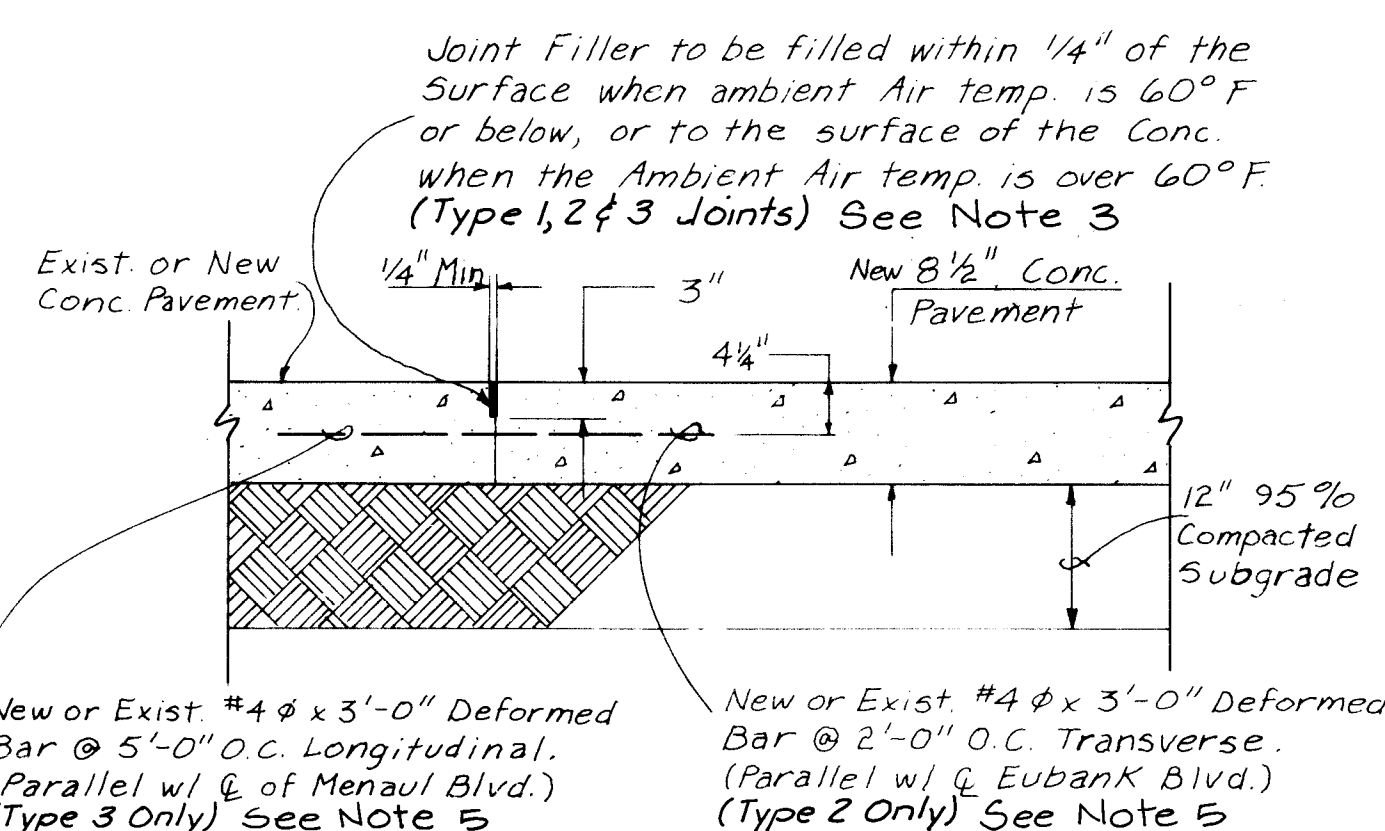 Joint Filler to be filled within 1/4" of the
Surface when ambient Air temp. is 60° F
or below, or to the surface of the Conc.
when the Ambient Air temp. is over 60° F.
(Type 1, 2 & 3 Joints) See Note 3
Exist. or New
Conc. Pavement
1/4" Min.
3"
New 8 1/2" Conc.
Pavement
4 1/4"
12" 95%
Compacted
Subgrade
New or Exist. #4 ϕ x 3'-0" Deformed
Bar @ 5'-0" O.C. Longitudinal.
(Parallel w/ ℄ of Menaul Blvd.)
(Type 3 Only) See Note 5
New or Exist. #4 ϕ x 3'-0" Deformed
Bar @ 2'-0" O.C. Transverse.
(Parallel w/ ℄ Eubank Blvd.)
(Type 2 Only) See Note 5